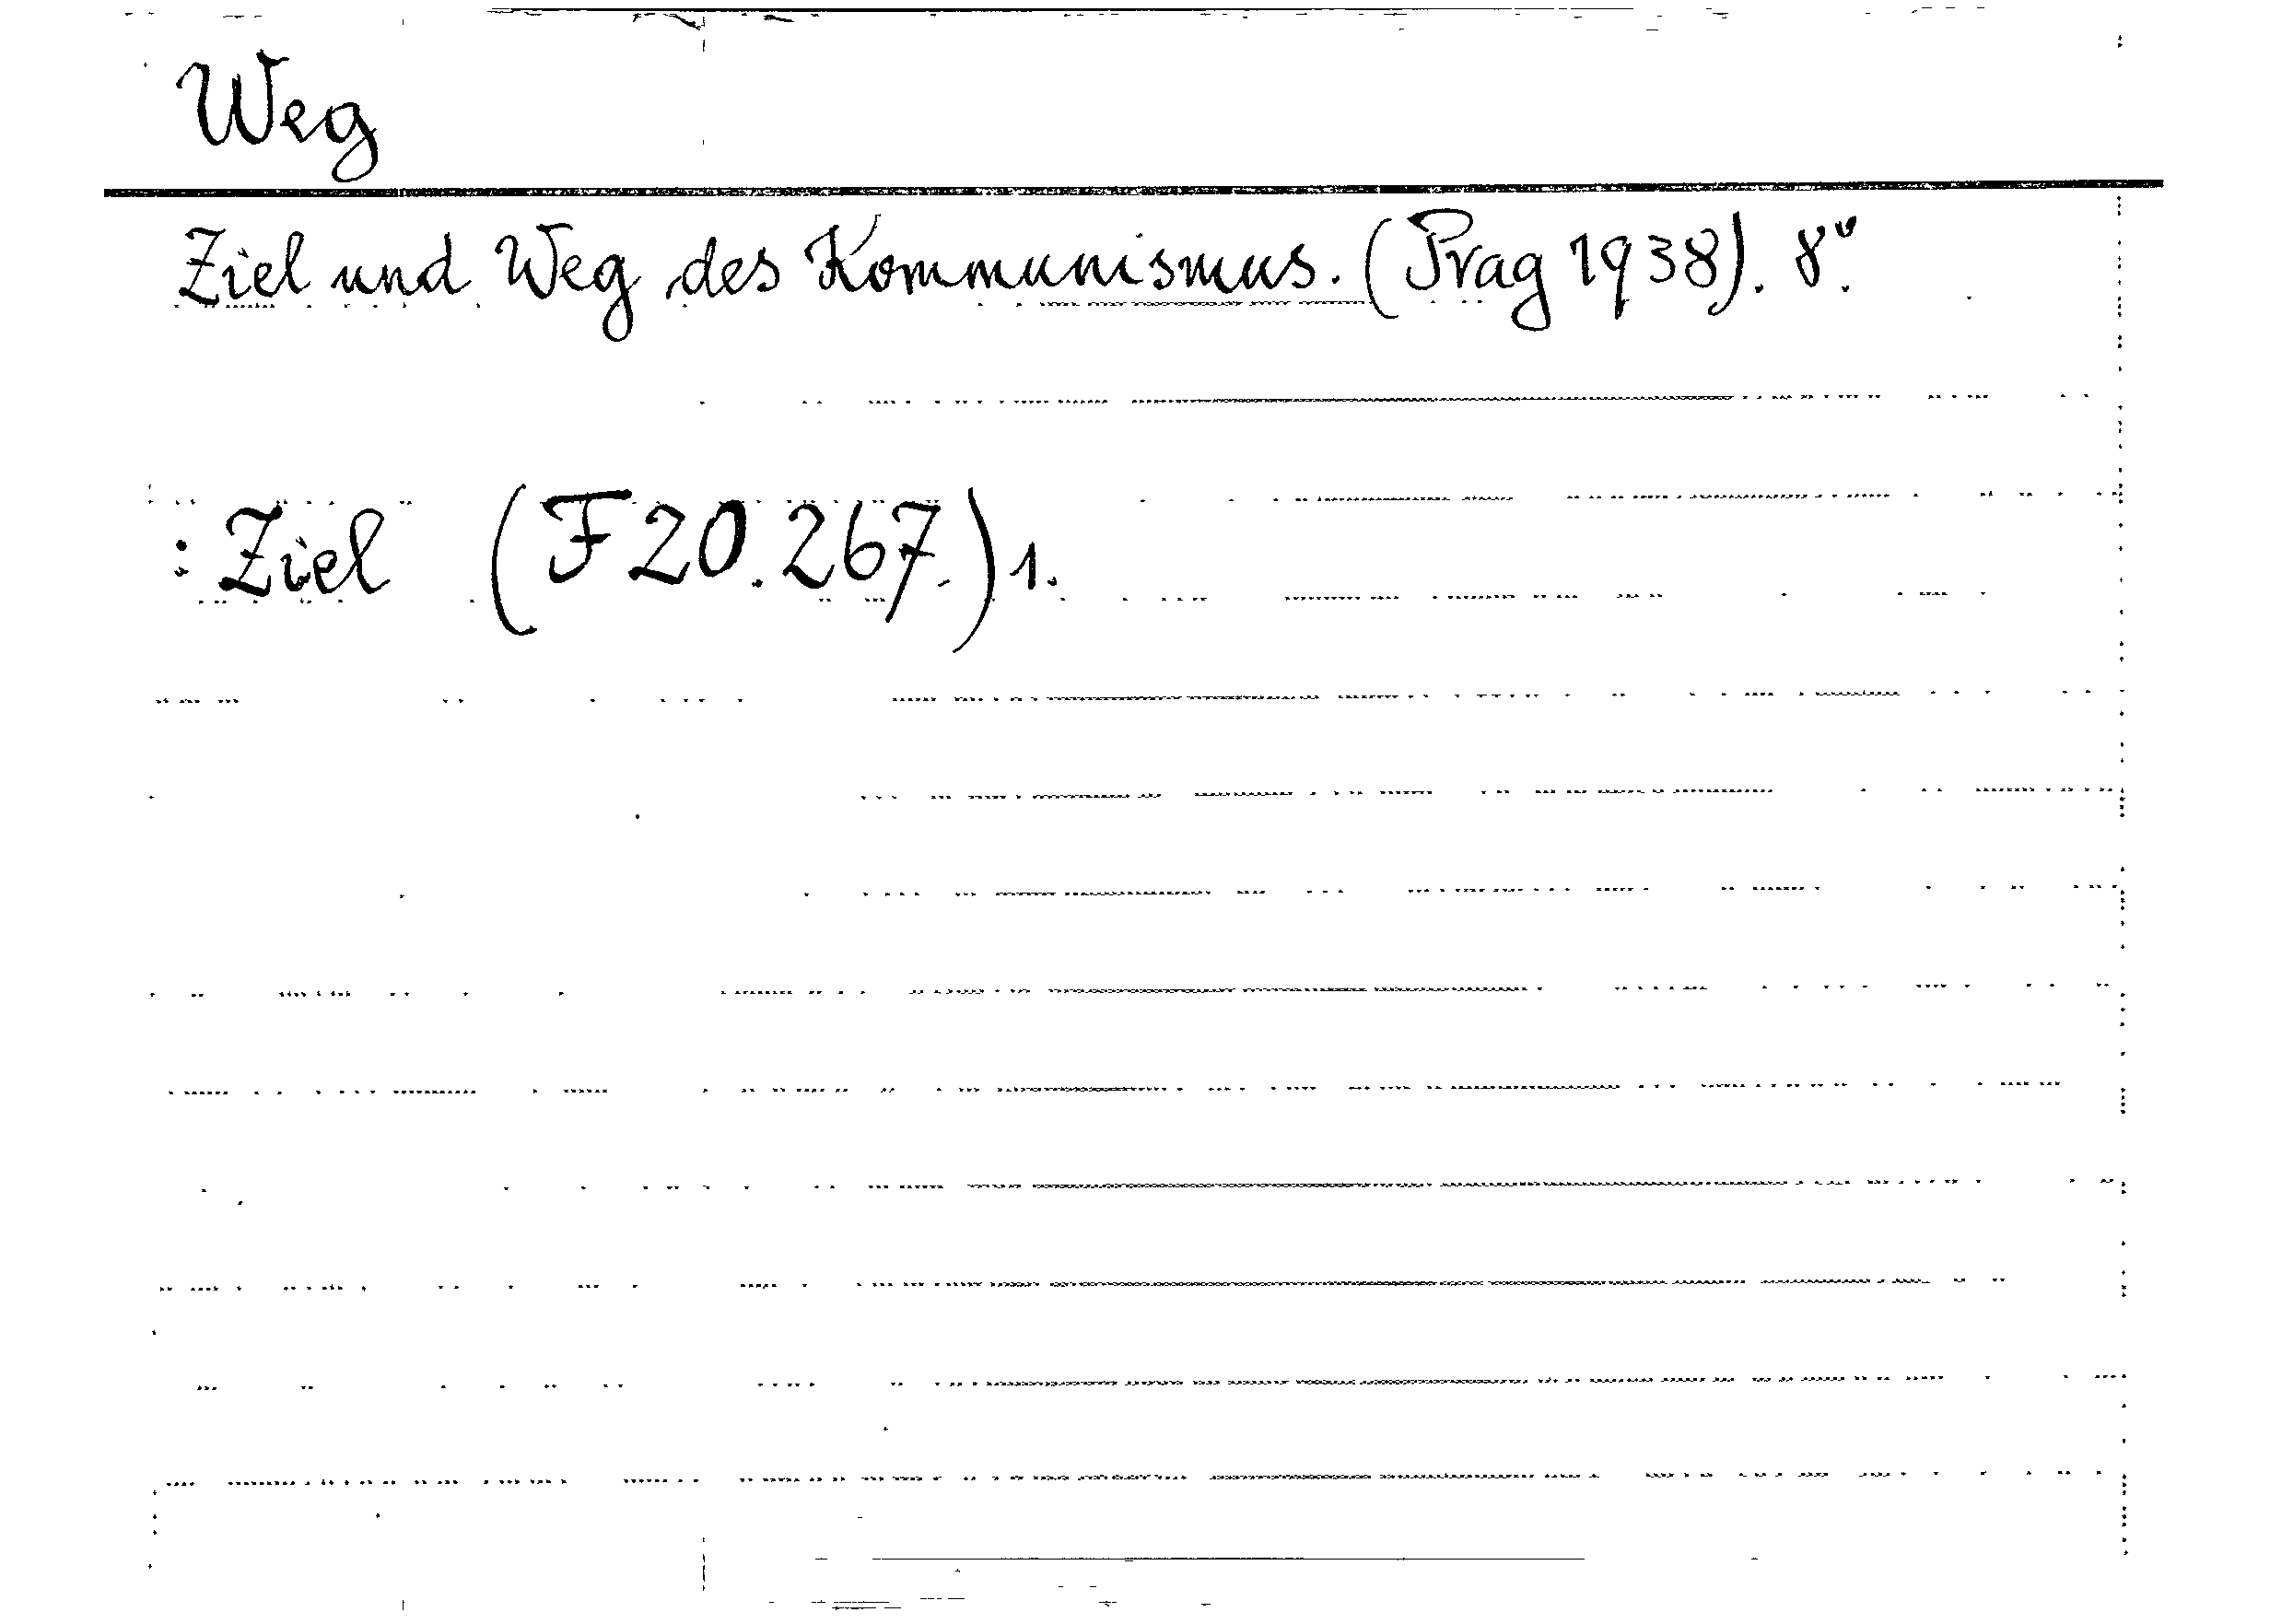 Weg
Ziel und Weg des Kommunismus. (Prag 1938). 8°.
: Ziel (F 20.267.) 1.